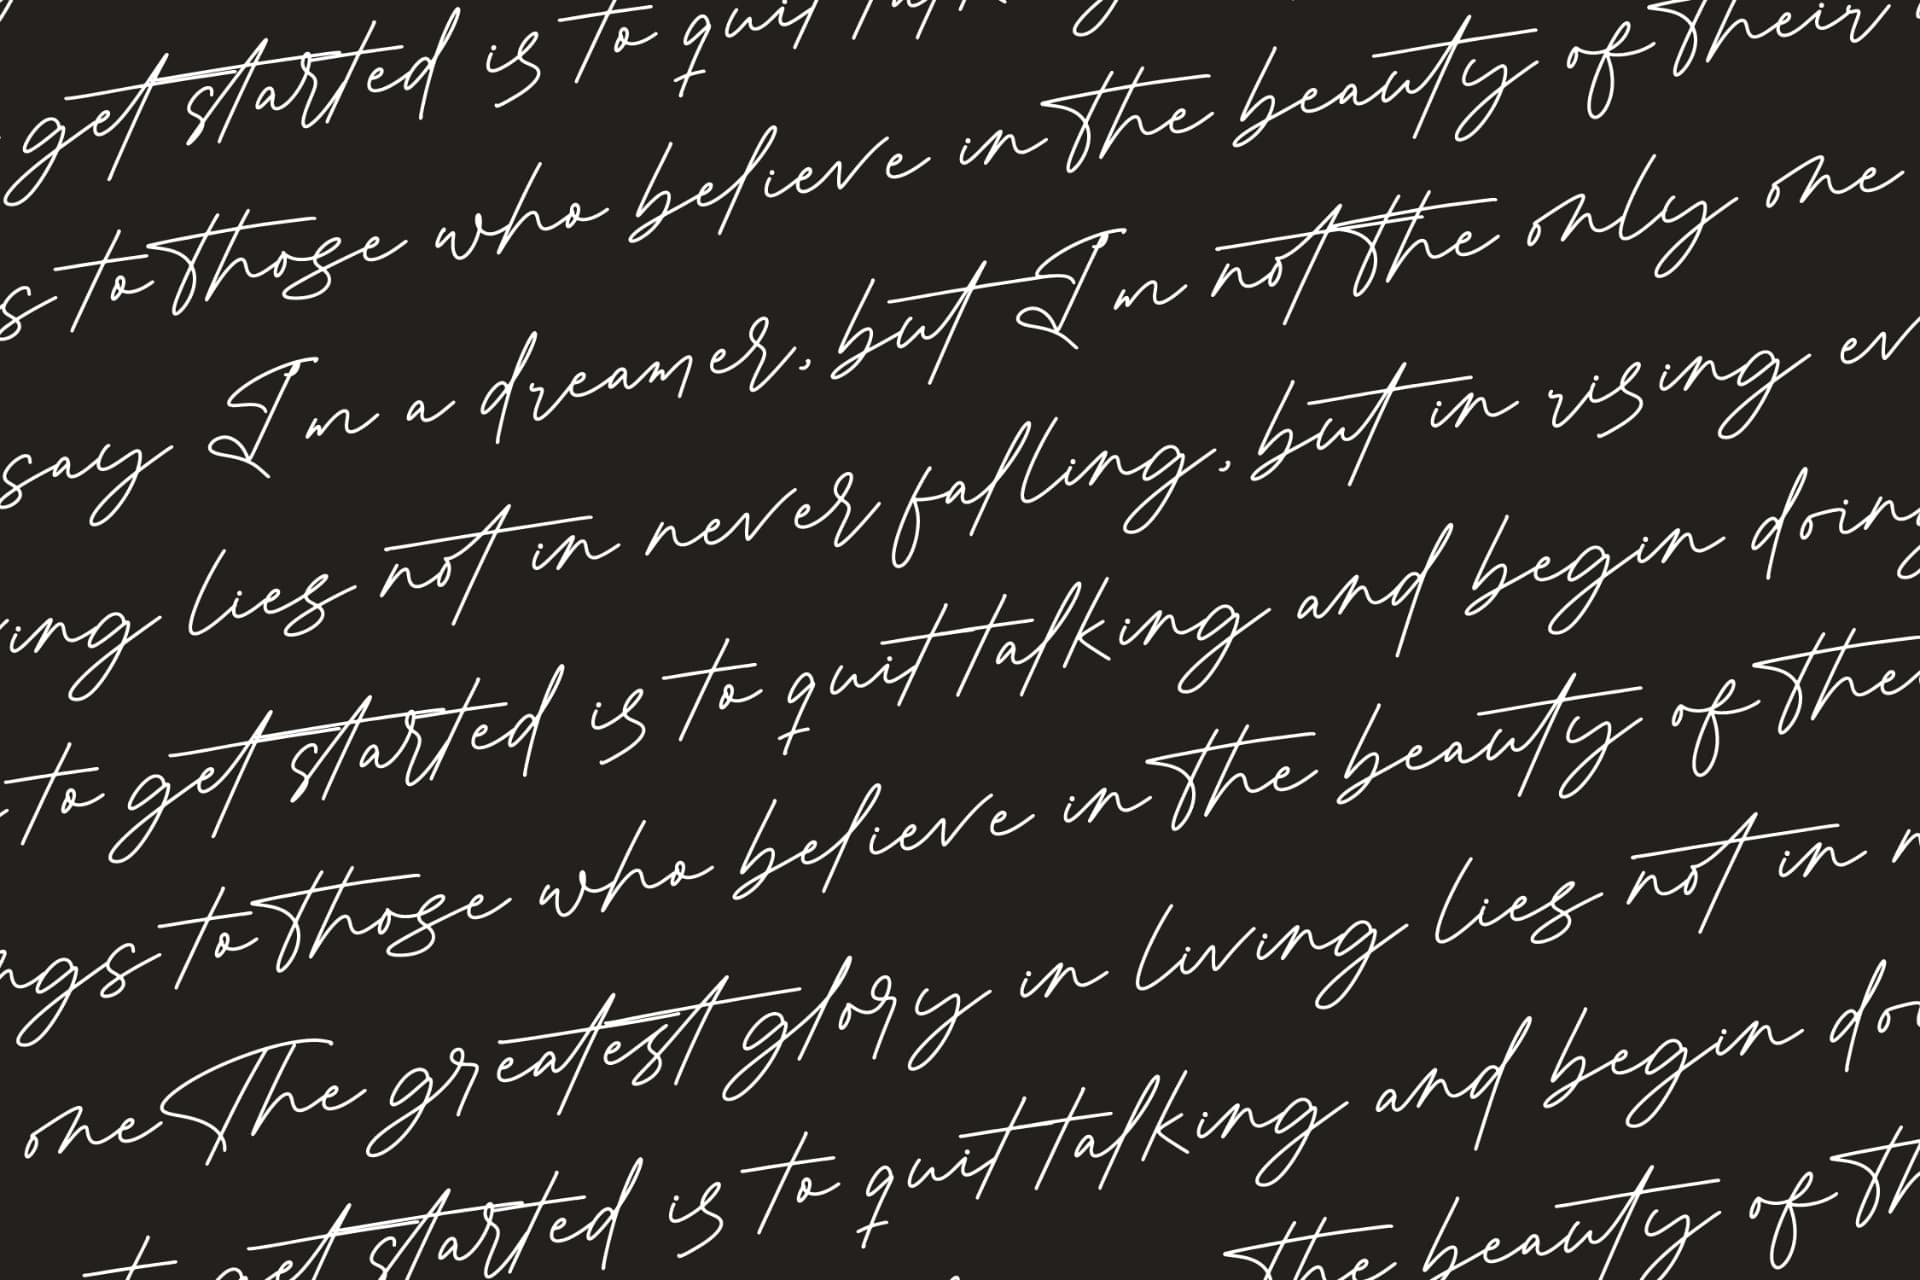 get started is to quit talking
s to those who believe in the beauty of their
say I'm a dreamer, but I'm not the only one
ing lies not in never falling, but in rising ev
to get started is to quit talking and begin doing
ngs to those who believe in the beauty of thei
one The greatest glory in living lies not in n
to get started is to quit talking and begin doi
the beauty of th